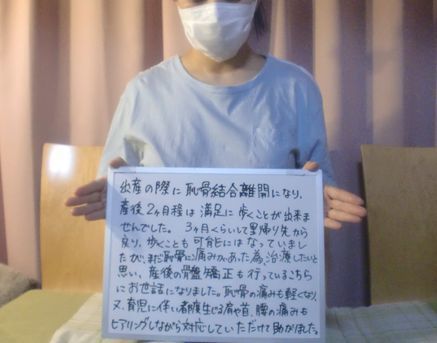 出産の際に恥骨結合離開になり、
産後2ヶ月程は満足に歩くことが出来ま
せんでした。3ヶ月くらいして里帰り先から
戻り、歩くことも可能にはなっていまし
たが、まだ恥骨に痛みがあった為、治療したいと
思い、産後の骨盤矯正も行っているこちら
にお世話になりました。恥骨の痛みも軽くなり、
又、育児に伴い都度生じる肩や首、腰の痛みも
ヒアリングしながら対応していただけて助かりました。